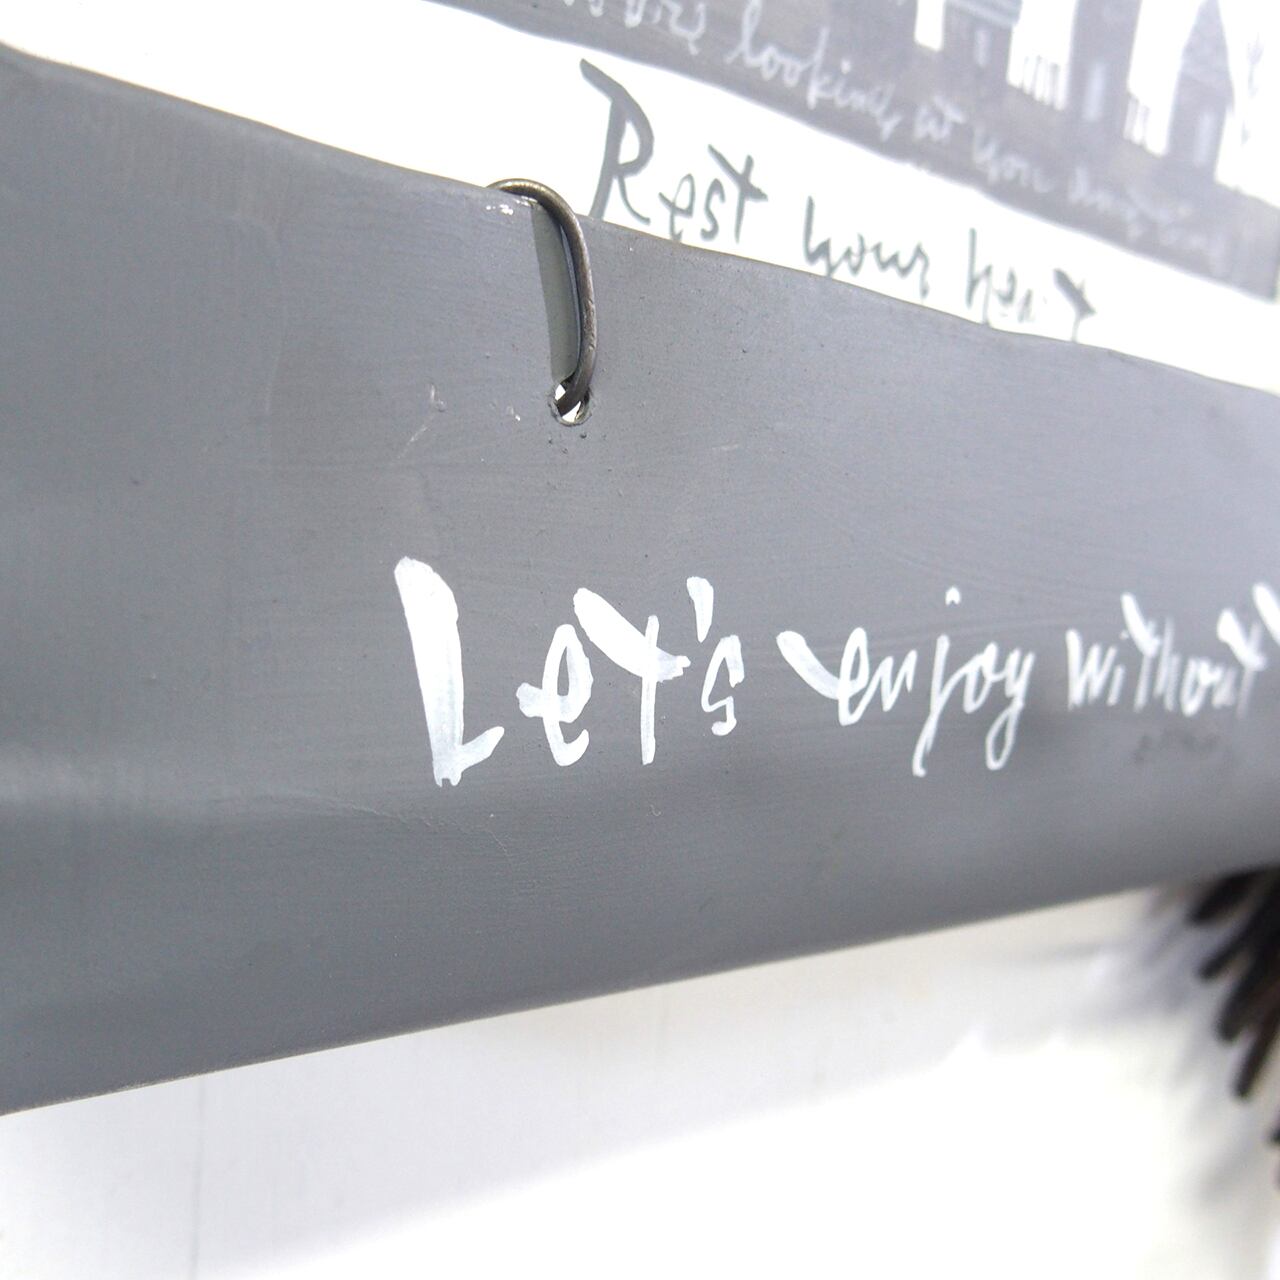 looking at you anytime
Rest your heart
Let's enjoy without